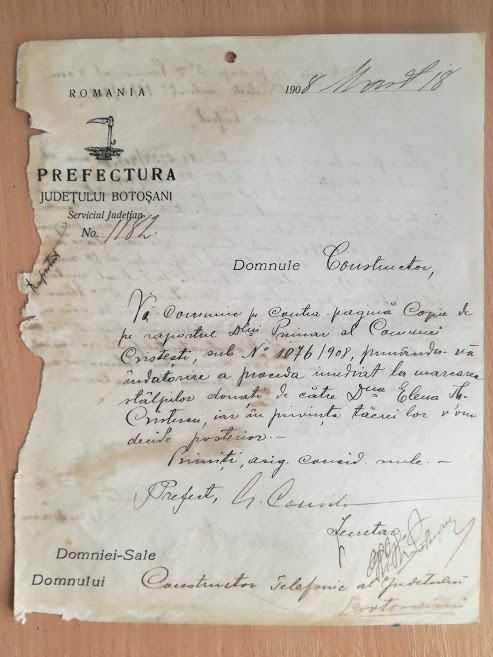 ROMANIA
1908 Mart 18
PREFECTURA
JUDEŢULUI BOTOŞANI
Serviciul Judeţian
No. 1182
Domnule Constructor,
Vă comunic pe contra-pagină Copie de
pe raportul Dlui Primar al Comunei
Cristeşti, sub No 1076/908, punându-vă
îndatorire a proceda imediat la marcarea
stâlpilor donati de către Dna Elena Th.
Cristescu, iar în privinţa tăerei lor vom
decide posterior. —
Primiţi, asig. consid. mele. —
Prefect,
Secretar
Domniei-Sale
Domnului Constructor Telefonic al Judeţului
Botoşani